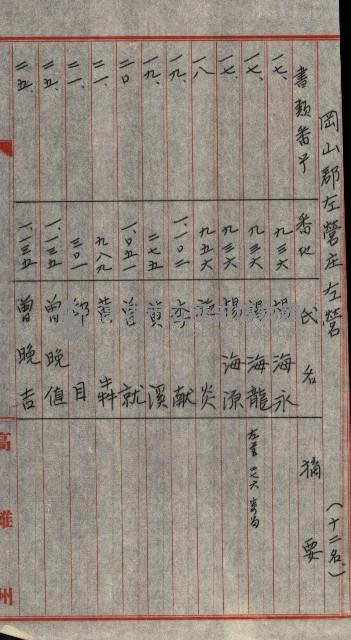 岡山郡左營庄左營
(十二名)
書類番号 番地 氏名 摘要
一七、 九三六 楊海永
一七、 九三六 楊海龍
一七、 九三六 楊海源
一八 九五六 炎
一九、 一、一〇二 李献
一九、 二七五 黃溪
二〇 一、〇五一 曾就
二一、 九八九 黃犇
二一、 三〇一 邱目
二五、 一、一三五 曾晚值
二五、 一、一三五 曾晚吉
高雄州